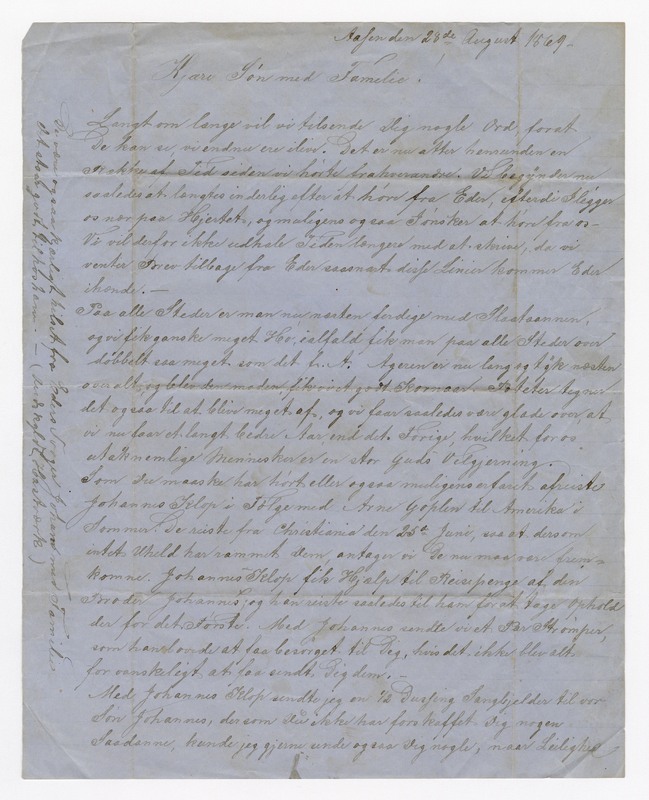 Aasen den 28de August 1869.
Kjære Søn med Familie.
Langt om længe vil vi tilsende Dig nogle Ord, forat
De kan se vi endnu ere ilive. Det er nu atter henrunden en
Række af Tid siden vi hørte fra hverandre. Vi begynder nu
saaledes at længtes inderlig efter at høre fra Eder, efterdi I ligger
os nær paa Hjertet, og muligens ogsaa I ønsker at høre fra os.
Vi vil derfor ikke udhale Tiden længere med at skrive, da vi
venter Brev tilbage fra Eder saasnart disse Linier kommer Eder
ihænde. —
Paa alle Steder er man nu næsten færdige med Slaataannen,
og vi fik ganske meget Hø, ialfald fik man paa alle Steder over
dobbelt saa meget som det f. A. Ageren er nu lang og tyk næsten
overalt, og blev den moden, fik vi et godt Kornaar. Poteter tegner
det ogsaa til at blive meget af, og vi faar saaledes være glade over, at
vi nu faar et langt bedre Aar end det Forige, hvilket for os
utaknemlige Mennesker er en stor Guds Velgjerning.
Som Du maaske har hørt eller ogsaa muligens erfaret afreiste
Johannes Klop i Følge med Arne Gøplen til Amerika i
Sommer. De reiste fra Christiania den 25de Juni, saa at dersom
intet Uheld har rammet dem, antager vi De nu maa være frem-
komne. Johannes Klop fik Hjælp til Reisepenge af den
Broder Johannes, og han reiste saaledes til ham for at tage Ophold
der for det Første. Med Johannes sendte vi et Par Strømper,
som han lovede at faa besørget til Dig, hvis det ikke blev alt
for vanskeligt at faa sendt Dig dem. —
Med Johannes Klop sendte jeg en ½ Dusseng Sangbjelder til vor
Søn Johannes, dersom Du ikke har forskaffet Dig nogen
Saadanne, kunde jeg gjerne sende ogsaa Dig nogle, naar Leilighed
De være ogsaa kjærligt hilset fra Eders Broder Johan med Familie
Det staar godt til hos ham. — (Undskyld Hastværk)